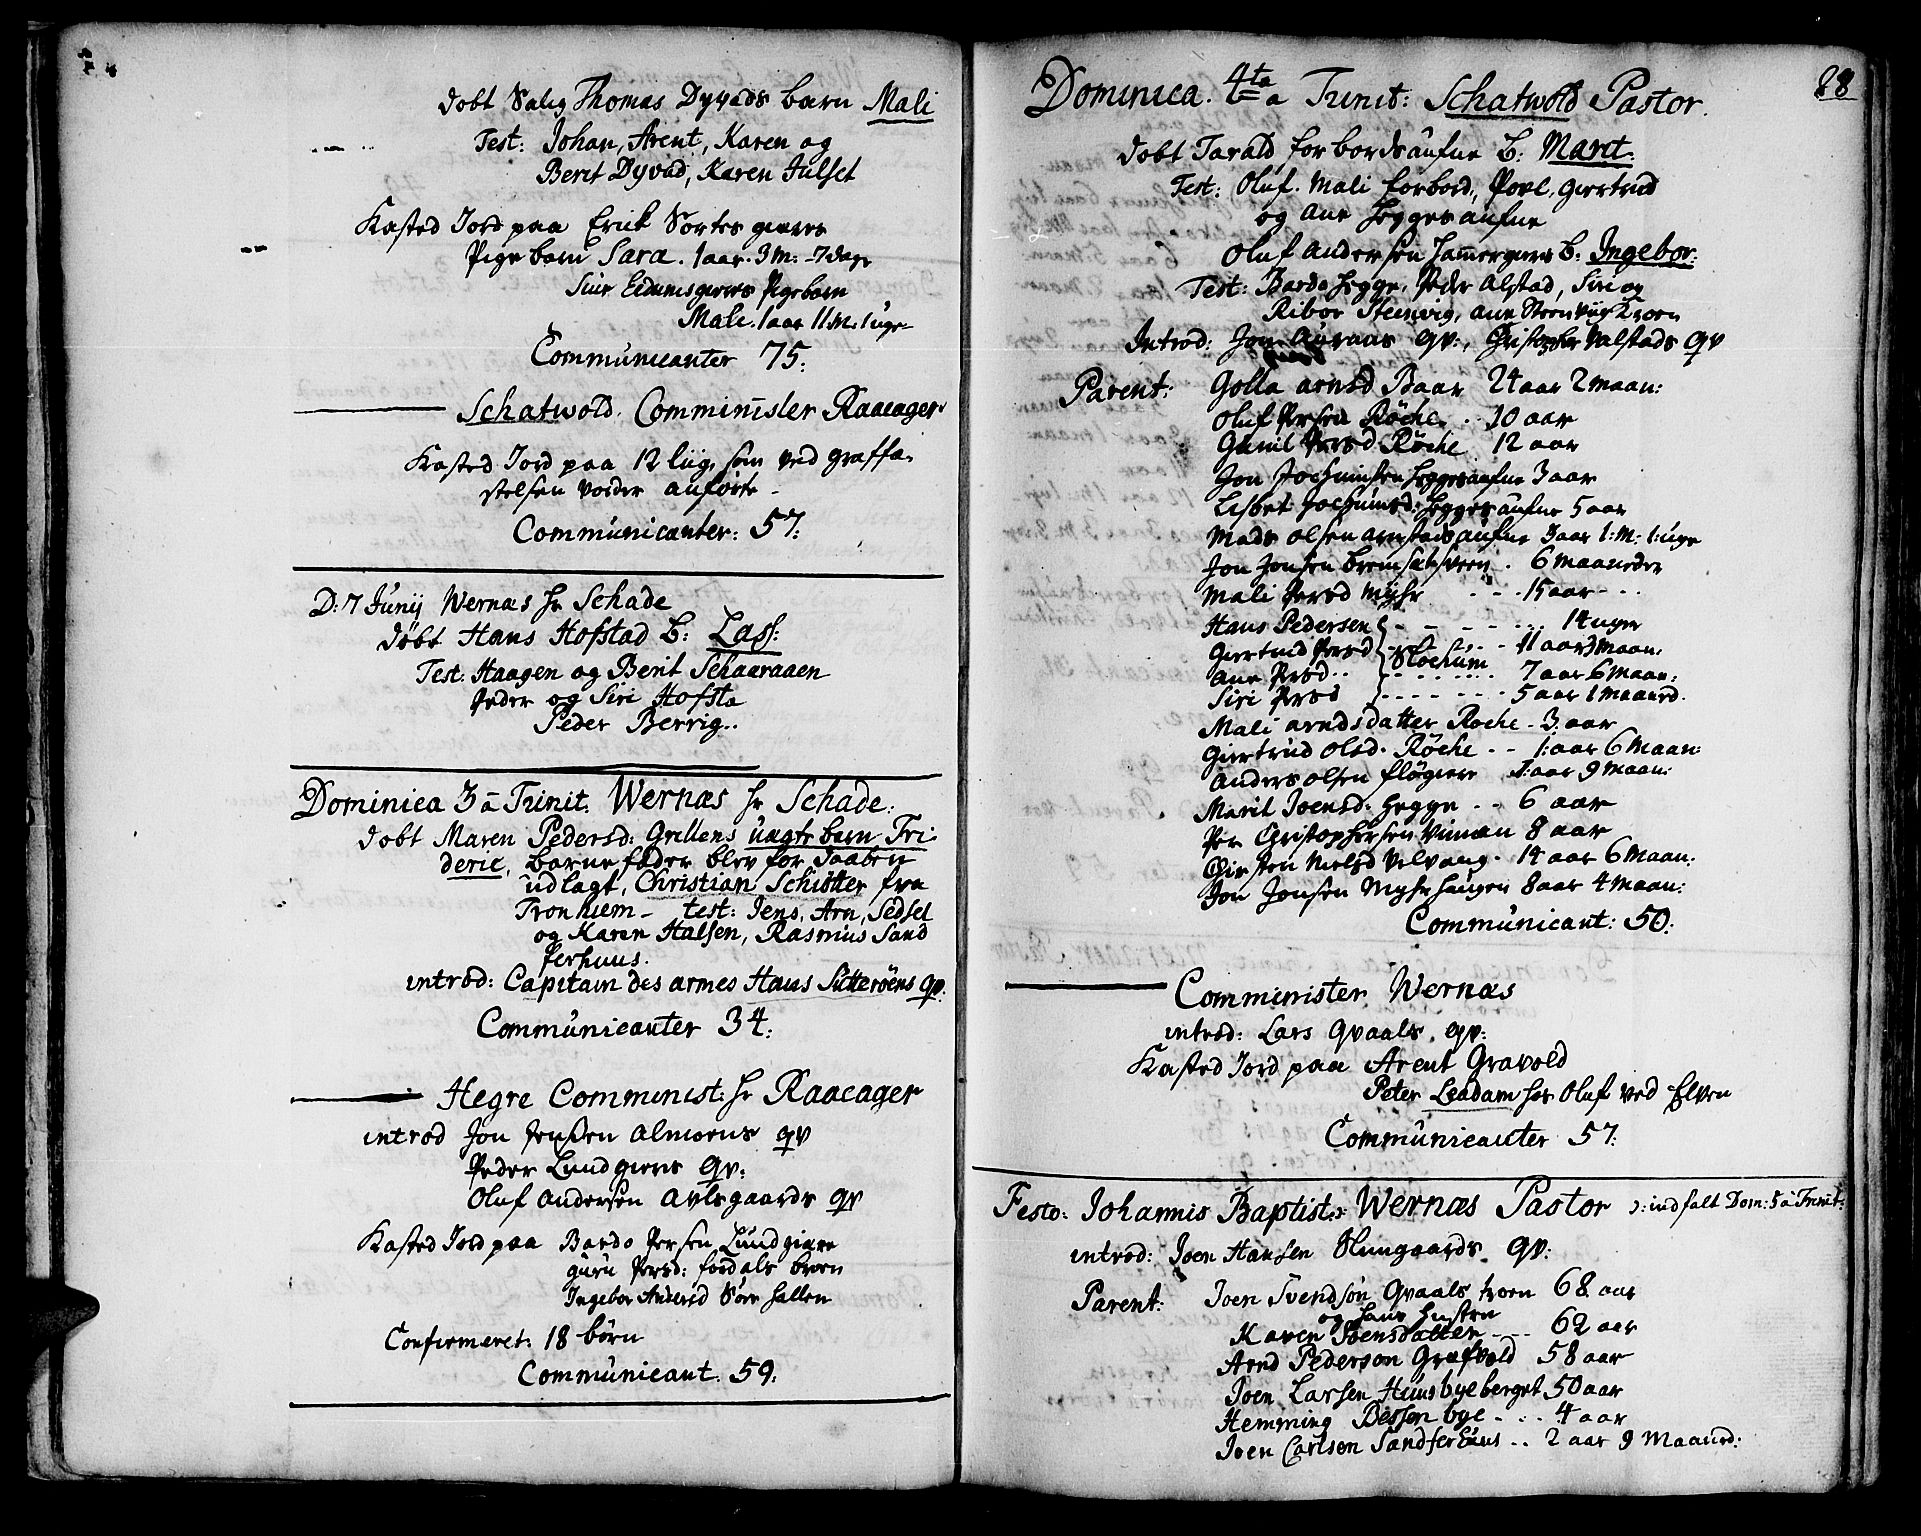 dobt Salig Thomas Dyvads barn Mali
Test: Johan, Arent, Karen og
Berit Dyvad, Karen Julset
Kasted Jord paa Erick Sortes gieres
Pige barn Sara. 1 aar. 3 M: 7 dage
Siur Eidumsgieres Pigebarn
Mali. 1 aar 11 M. 1 uge
Communicanter 75.
Schatwold. Comminister Raaeager
Kasted Jord paa 12 liig, som ved graffa-
stelsen vorder anførte
Communicanter: 57.
D: 7 Junij Wernæs hr Schade
døbt Hans Hofstad B: Lass:
Test: Haagen og Berit Schaaraaen
Peder og Siri Hofsta
Peder Berrig..
Dominica 3 a Trinit. Wernæs hr Schade:
dobt Maren Pedersd: Grillens uægte barn Fri-
deric, barnefader blev for daaben
udlagt, Christian Schiøtter fra
Tronhiem - test: Jens, Arn, Sedsel
og Karen Halsen, Rasmus Sand
ferhuus.
introd: Capitain des armes Hans Sutterøens qv.
Communicanter 34.
Hegre Comminist: hr Raaeager
introd Jon Jensen Almoens qv
Peder Lundgieres qv:
Oluf Andersen Avlsgaards qv
Kasted Jord paa Bardo Persen Lundgiere
guru Persd: fordals broen
Ingebor Andersd Sorehallen
Confirmeret: 18 børn
Communicant. 59.
28
Dominica. 4ta a Trinit: Schatwold Pastor.
dobt Tarald forbordsaufne B: Marit.
Test: Oluf. Mali forbord, Povl, giertrud
og ane heggesaufne
Oluf andersen hammergieres B: Ingebor:
Test: Bardo hegge, Peder alstad, Siri og
Ribor Steinvig, ane Steenviig
Introd: Jon Auraas qv:, Christopher Valstads qv
Parent: Golla arnsd Baar 24 aar 2 maan:
Oluf Persen Röche .. 10 aar
Guruil Persd Röche 12 aar
Jon Jochumsen heggesaufne 3 aar
Lisbet Jochumsd: heggesaufne 5 aar
Mads olsen arnstadsaufne 3 aar 1: M: 1: uge
Jon Jonsen . 6 maaneder
Mali Persd Myhr - - - 15 aar - - -
Hans Pedersen - - - - - 14 uger
Giertrud Persd - - - - 11 aar 3 Maan:
Stochum
ane Persd .. - - - - 7 aar 6 Maan:
Siri Persd - - - - 5 aar 1 maaned.
Mali arndsdatter Roche - 3. aar
Giertrud olsd. Röche - - 1: aar 6 Maan:
Anders olsen fløgiere 1: aar 9 maan:
Marit Joensd: hegge - - 6 aar
Per Christophersen Viman 8 aar
Kirsten Nielsd Velvang. 14 aar 6 Maan:
Jon Jonsen Myhrhaugen 8 aar 4 Maan:
Communicant: 50.
Comminister Wernæs
introd: Lars Qvaals, qv:
Kasted Jord paa Arent Gravold
Peter Leadam hos Oluf ved Elven
Communicanter 57.
Festo: Johannis Baptistæ Wernæs Pastor ɔ: indfalt Dom: 5 a Trinit:
introd: Joen Hansen Slungaards. qv:
Parent: Joen Svendsøn Qvaals troen 68 aar
og hans hustru
Karen Joensdatter - - - 62 aar
Arnd Pederson Grafvold 58 aar
Joen Larsen Huusbyeberget 50 aar
Hemming Bessen bye - . . 4 aar
Joen Carlsen Sandferhuus . . 2 aar 9 Maaned: